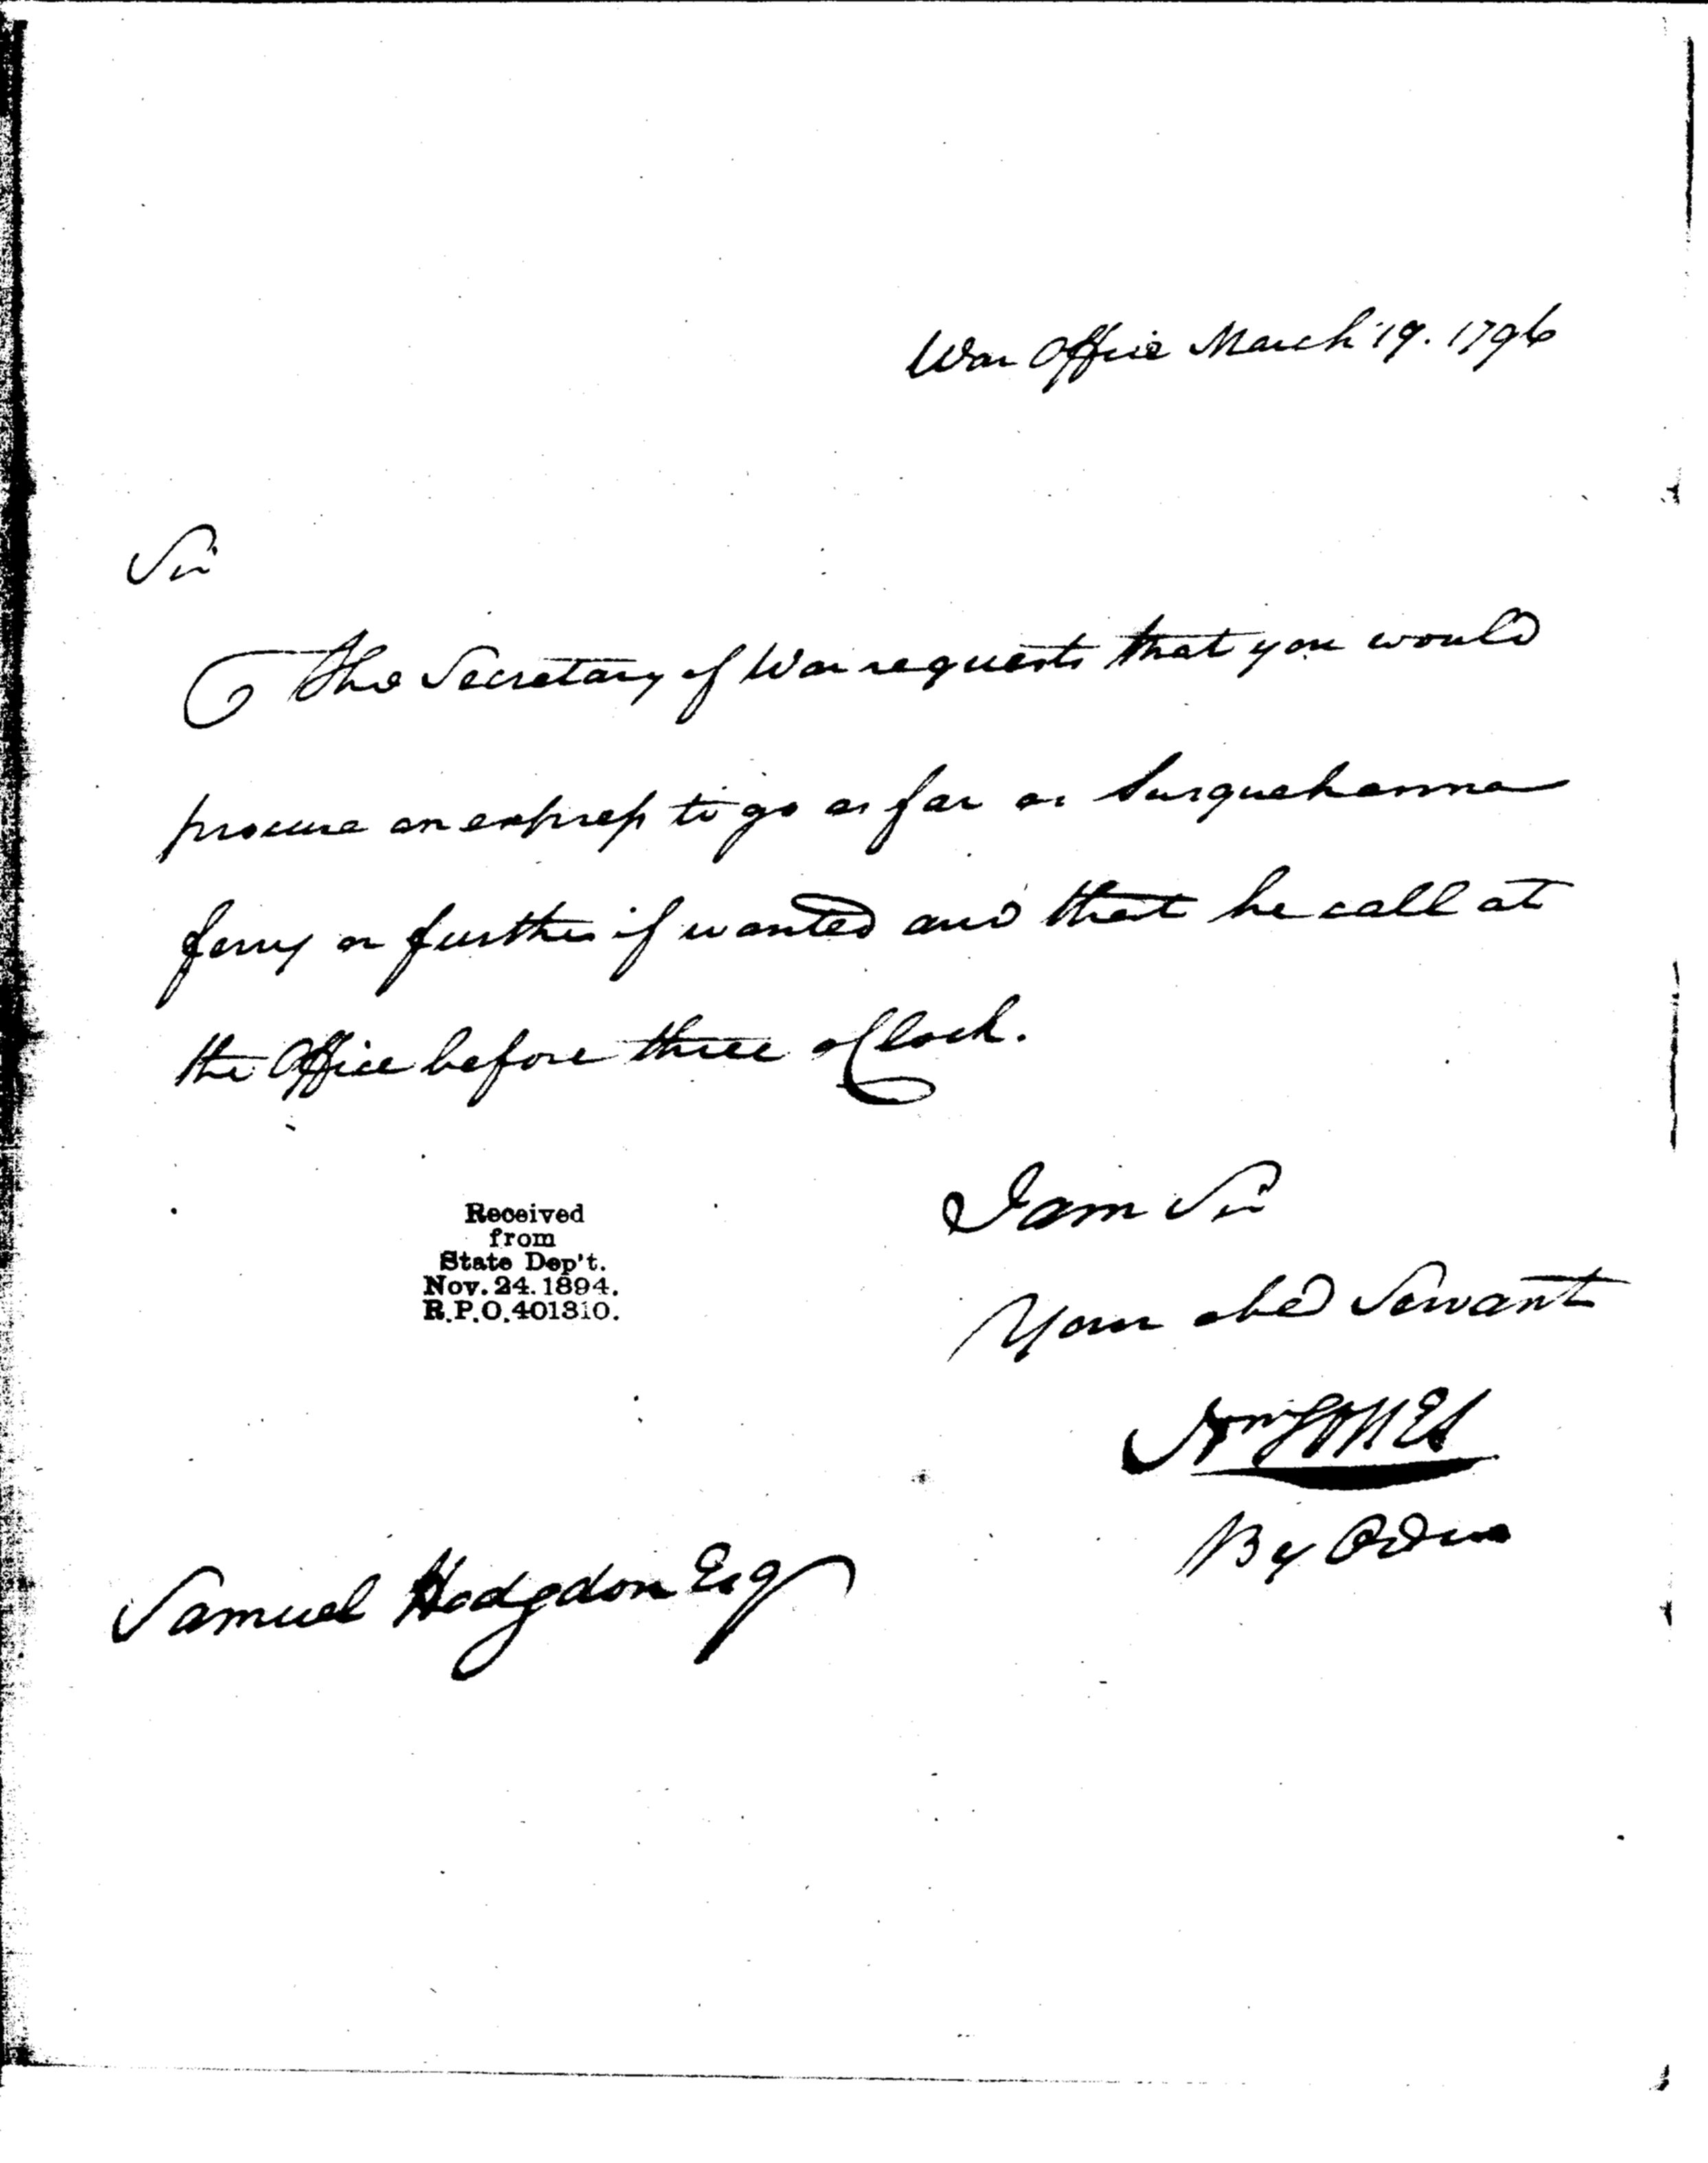 War Office March 19. 1796
Sir
The Secretary of War requests that you would
procure an express to go as far as Susquehanna
ferry or further if wanted and that he call at
the Office before three oClock.
I am Sir
Your obed Servant
Received
from
State Dep't.
Nov. 24. 1894.
R.P.O. 401310.
By Order
Samuel Hodgdon Esq